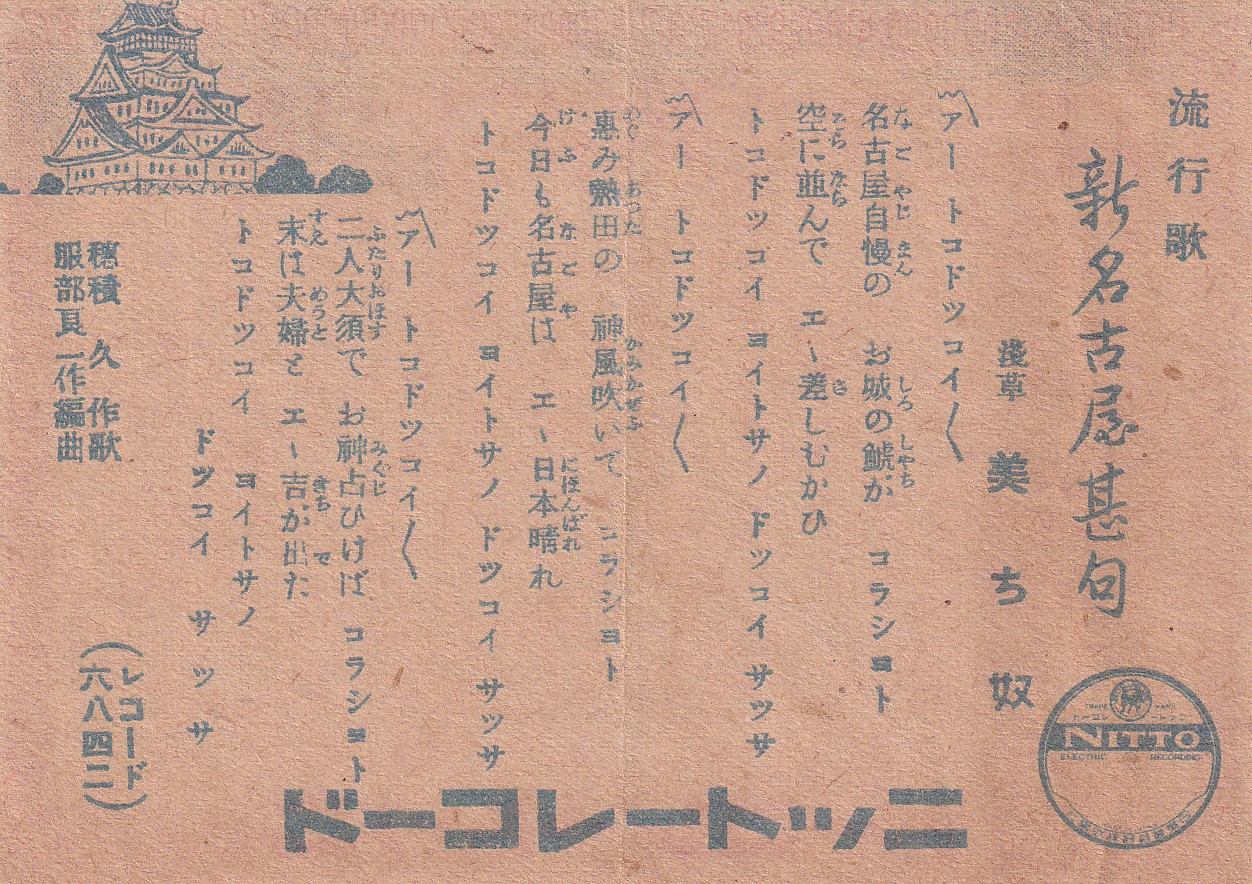 流行歌
新名古屋甚句
浅草 美ち奴
〽アー トコドツコイ〱
名古屋自慢の お城の鯱が コラシヨト
空に並んで エヽ差しむかひ
トコドツコイ ヨイトサノ ドツコイ サツサ
〽アー トコドツコイ〱
恵み熱田の 神風吹いて コラシヨト
今日も名古屋は エヽ日本晴れ
トコドツコイ ヨイトサノ ドツコイ サツサ
〽アー トコドツコイ〱
二人大須で お神占ひけば コラシヨト
末は夫婦と エヽ吉が出た
トコドツコイ ヨイトサノ
ドツコイ サツサ
穂積 久 作歌
服部良一作編曲
(レコード
六八四二)
TRADE MARK
ニットーレコード
NITTO
ELECTRIC RECORDING
ニットーレコード